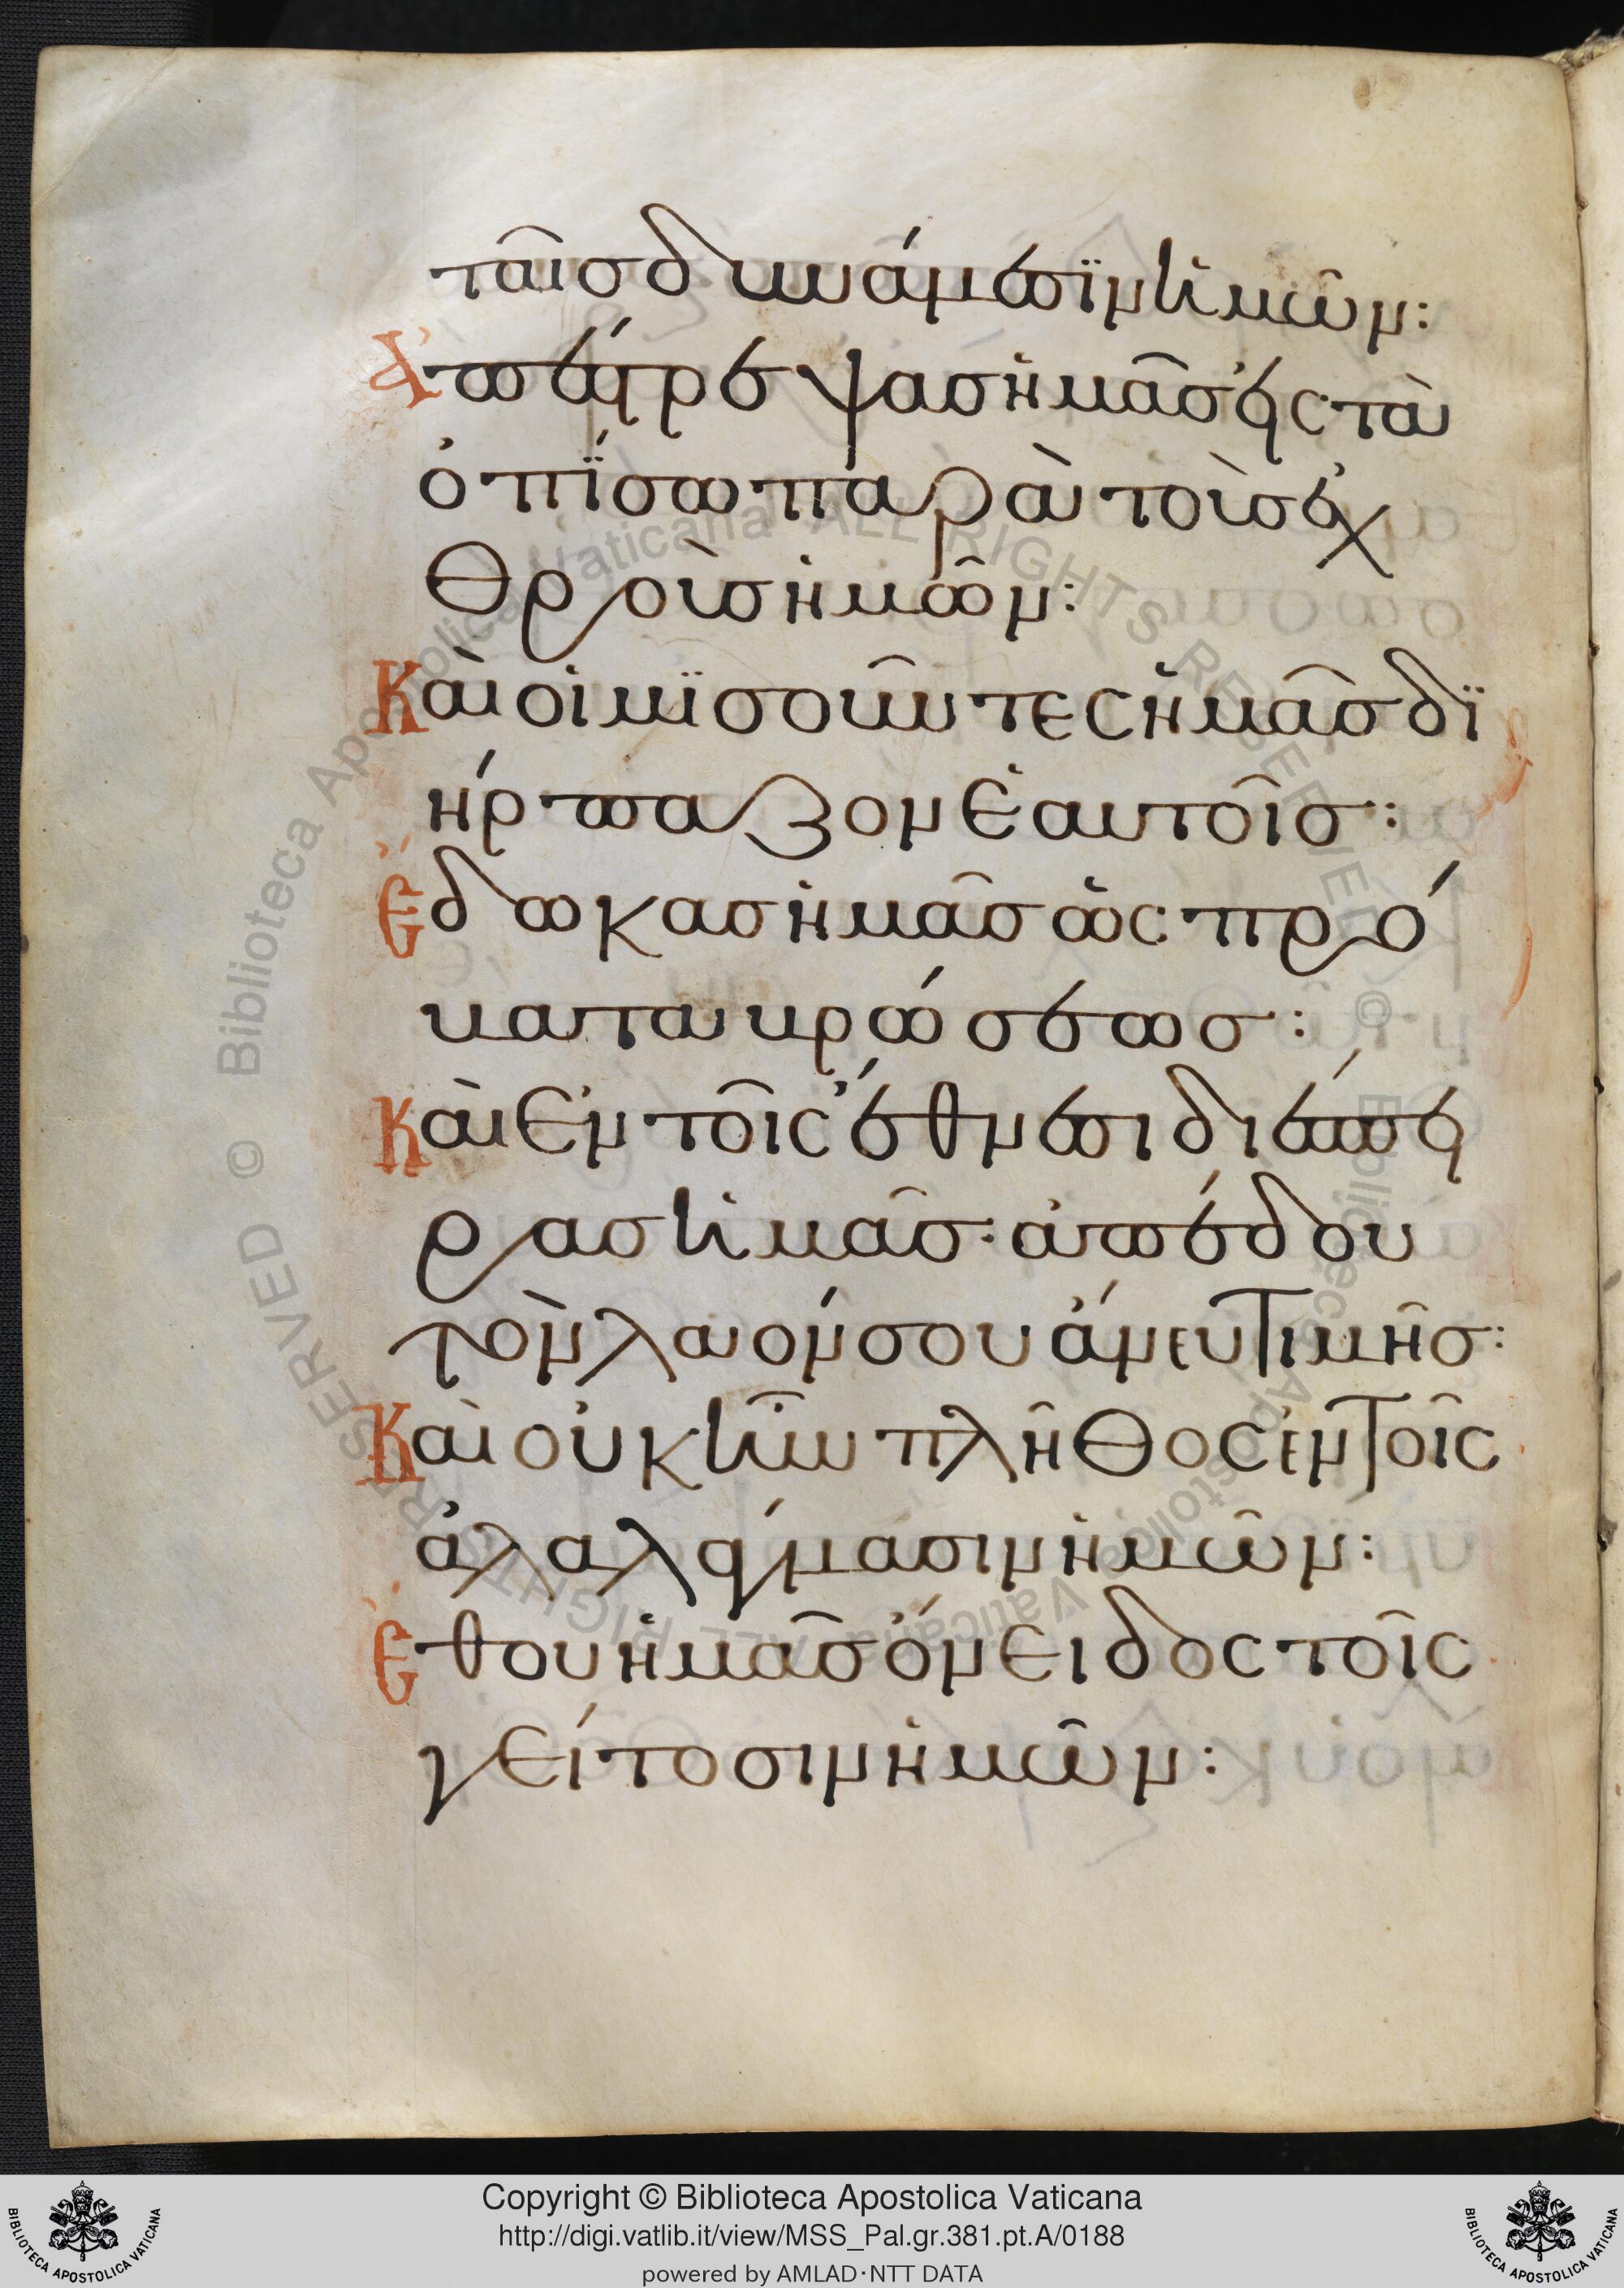 ταῖς δυνάμεσϊν ἡμῶν:
Ἀπέστρεψας ἡμᾶς εἰς τὰ
ὀπΐσω παρὰ τοὺς ἐχ
Θροὺς ἡμῶν:
Καὶ οἱ μϊσοῦντες ἡμᾶς δϊ
ήρπαζον ἑαυτοῖς:
Ἔδωκας ἡμᾶς ὡς πρό
βατα βρώσεως:
Καὶ ἐν τοῖς ἔθνεσι διέσπει
ρας ἡμᾶς: ἀπέδου
τὸν λαόν σου ἄνευ τιμῆς:
Καὶ οὐκ ἦν πλῆθος ἐν τοῖς
ἀλαλάγμασιν ἡμῶν:
Ἔθου ἡμᾶς ὄνειδος τοῖς
γείτοσιν ἡμῶν:
Copyright © Biblioteca Apostolica Vaticana
http://digi.vatlib.it/view/MSS_Pal.gr.381.pt.A/0188
powered by AMLAD·NTT DATA
BIBLIOTECA APOSTOLICA VATICANA
BIBLIOTECA APOSTOLICA VATICANA